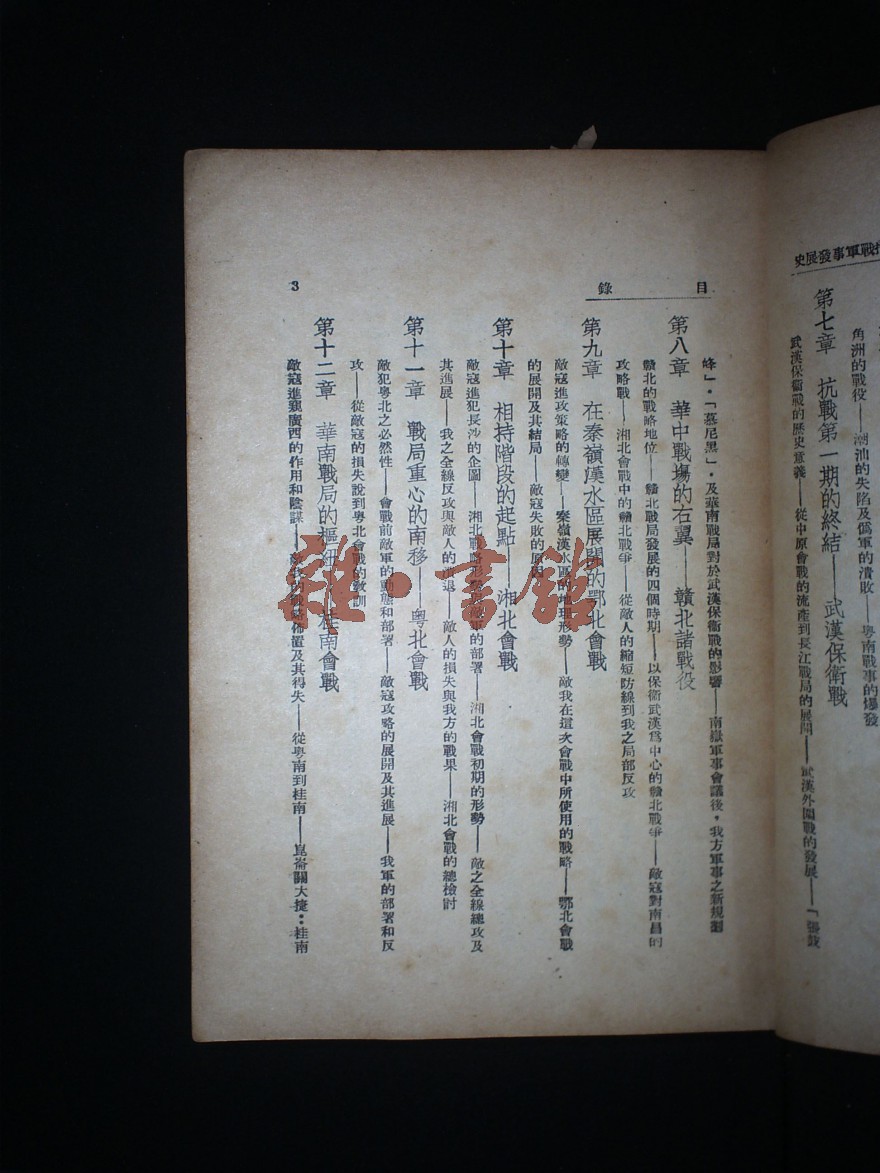 抗戰軍事發展史
角洲的戰役——潮汕的失陷及偽軍的潰敗——粤南戰事的爆發
第七章　抗戰第一期的終結——武漢保衛戰
武漢保衛戰的歷史意義——從中原會戰的流產到長江戰局的展開——武漢外圍戰的發展——「張鼓
目錄
3
峰」・「慕尼黑」・及華南戰局對於武漢保衛戰的影響——南嶽軍事會議後，我方軍事之新規劃
第八章　華中戰場的右翼——贛北諸戰役
贛北的戰略地位——贛北戰局發展的四個時期——以保衛武漢爲中心的贛北戰爭——敵寇對南昌的
攻略戰——湘北會戰中的贛北戰爭——從敵人的縮短防線到我之局部反攻
第九章　在秦嶺漢水區展開的鄂北會戰
敵寇進攻策略的轉變——秦嶺漢水區的地理形勢——敵我在這次會戰中所使用的戰略——鄂北會戰
的展開及其結局——敵寇失敗的原因
第十章　相持階段的起點——湘北會戰
敵寇進犯長沙的企圖——湘北戰略形勢 軍的部署——湘北會戰初期的形勢——敵之全線總攻及
其進展——我之全線反攻與敵人的 退——敵人的損失與我方的戰果——湘北會戰的總檢討
第十一章　戰局重心的南移——粤北會戰
敵犯粤北之必然性——會戰前敵軍的動態和部署——敵寇攻略的展開及其進展——我軍的部署和反
攻——從敵寇的損失說到粤北會戰的教訓
第十二章　華南戰局的樞紐——桂南會戰
敵寇進窺廣西的作用和陰謀——敵我的戰略佈置及其得失——從粤南到桂南——崑崙關大捷：桂南
雜・書館